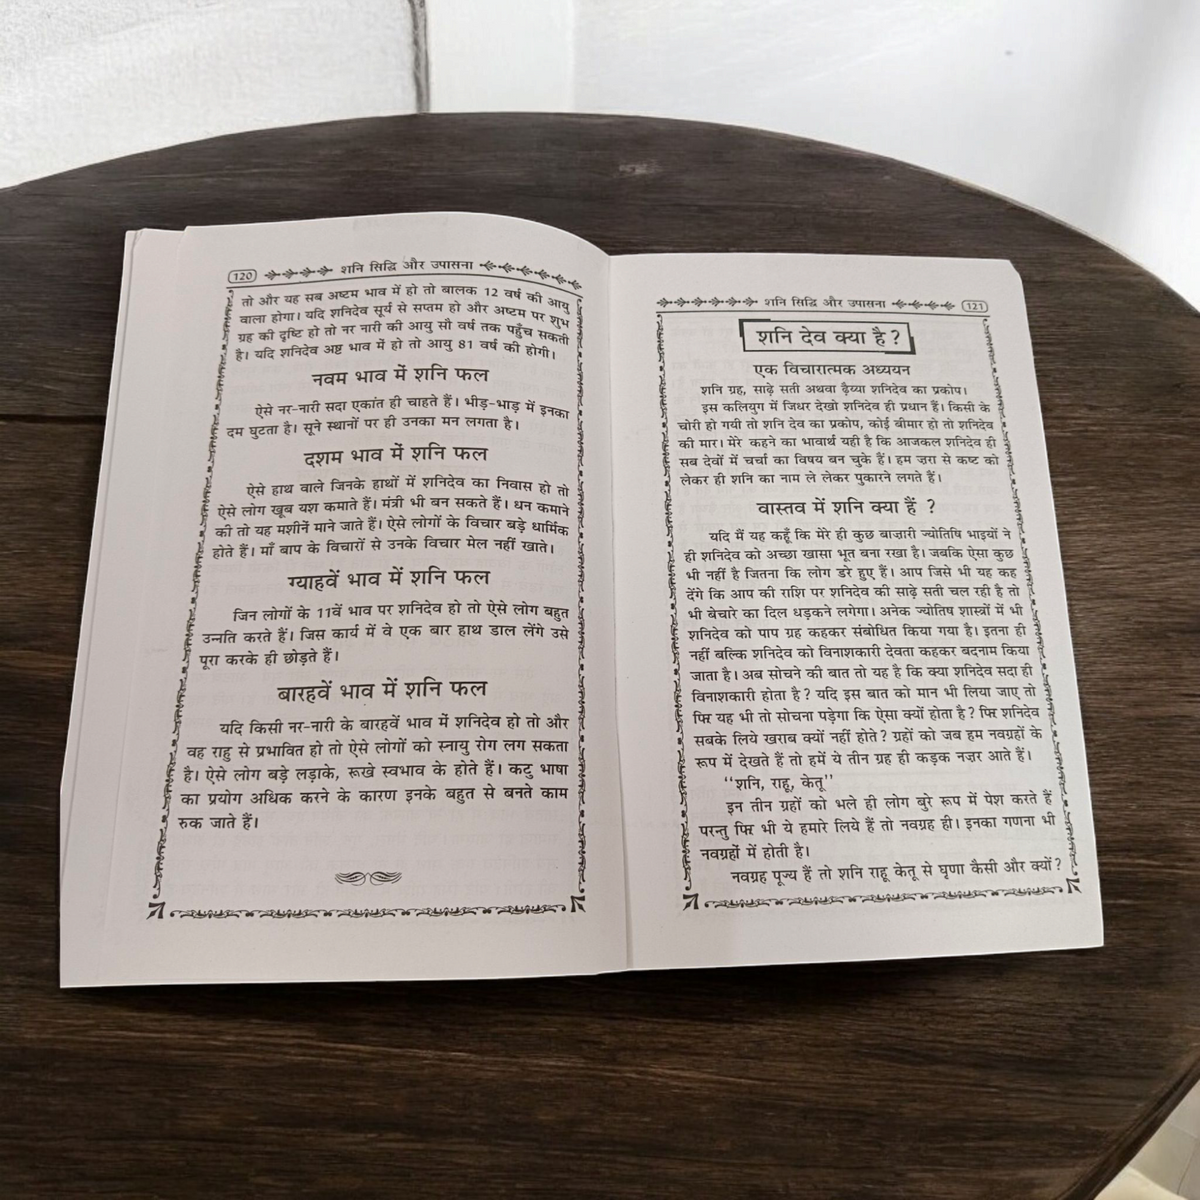 120 शनि सिद्धि और उपासना
तो और यह सब अष्टम भाव में हो तो बालक 12 वर्ष की आयु
वाला होगा। यदि शनिदेव सूर्य से सप्तम हो और अष्टम पर शुभ
ग्रह की दृष्टि हो तो नर नारी की आयु सौ वर्ष तक पहुँच सकती
है। यदि शनिदेव अष्ट भाव में हो तो आयु 81 वर्ष की होगी।
नवम भाव में शनि फल
ऐसे नर-नारी सदा एकांत ही चाहते हैं। भीड़-भाड़ में इनका
दम घुटता है। सूने स्थानों पर ही उनका मन लगता है।
दशम भाव में शनि फल
ऐसे हाथ वाले जिनके हाथों में शनिदेव का निवास हो तो
ऐसे लोग खूब यश कमाते हैं। मंत्री भी बन सकते हैं। धन कमाने
की तो यह मशीनें माने जाते हैं। ऐसे लोगों के विचार बड़े धार्मिक
होते हैं। माँ बाप के विचारों से उनके विचार मेल नहीं खाते।
ग्याहवें भाव में शनि फल
जिन लोगों के 11वें भाव पर शनिदेव हो तो ऐसे लोग बहुत
उन्नति करते हैं। जिस कार्य में वे एक बार हाथ डाल लेंगे उसे
पूरा करके ही छोड़ते हैं।
बारहवें भाव में शनि फल
यदि किसी नर-नारी के बारहवें भाव में शनिदेव हो तो और
वह राहु से प्रभावित हो तो ऐसे लोगों को स्नायु रोग लग सकता
है। ऐसे लोग बड़े लड़ाके, रूखे स्वभाव के होते हैं। कटु भाषा
का प्रयोग अधिक करने के कारण इनके बहुत से बनते काम
रुक जाते हैं।
शनि सिद्धि और उपासना 121
शनि देव क्या है?
एक विचारात्मक अध्ययन
शनि ग्रह, साढ़े सती अथवा ढ़ैय्या शनिदेव का प्रकोप।
इस कलियुग में जिधर देखो शनिदेव ही प्रधान हैं। किसी के
चोरी हो गयी तो शनि देव का प्रकोप, कोई बीमार हो तो शनिदेव
की मार। मेरे कहने का भावार्थ यही है कि आजकल शनिदेव ही
सब देवों में चर्चा का विषय बन चुके हैं। हम ज़रा से कष्ट को
लेकर ही शनि का नाम ले लेकर पुकारने लगते हैं।
वास्तव में शनि क्या हैं ?
यदि मैं यह कहूँ कि मेरे ही कुछ बाज़ारी ज्योतिषि भाइयों ने
ही शनिदेव को अच्छा खासा भूत बना रखा है। जबकि ऐसा कुछ
भी नहीं है जितना कि लोग डरे हुए हैं। आप जिसे भी यह कह
देंगे कि आप की राशि पर शनिदेव की साढ़े सती चल रही है तो
भी बेचारे का दिल धड़कने लगेगा। अनेक ज्योतिष शास्त्रों में भी
शनिदेव को पाप ग्रह कहकर संबोधित किया गया है। इतना ही
नहीं बल्कि शनिदेव को विनाशकारी देवता कहकर बदनाम किया
जाता है। अब सोचने की बात तो यह है कि क्या शनिदेव सदा ही
विनाशकारी होता है? यदि इस बात को मान भी लिया जाए तो
फिर यह भी तो सोचना पड़ेगा कि ऐसा क्यों होता है? फिर शनिदेव
सबके लिये खराब क्यों नहीं होते? ग्रहों को जब हम नवग्रहों के
रूप में देखते हैं तो हमें ये तीन ग्रह ही कड़क नज़र आते हैं।
‘‘शनि, राहू, केतू’’
इन तीन ग्रहों को भले ही लोग बुरे रूप में पेश करते हैं
परन्तु फिर भी ये हमारे लिये हैं तो नवग्रह ही। इनका गणना भी
नवग्रहों में होती है।
नवग्रह पूज्य हैं तो शनि राहू केतू से घृणा कैसी और क्यों?